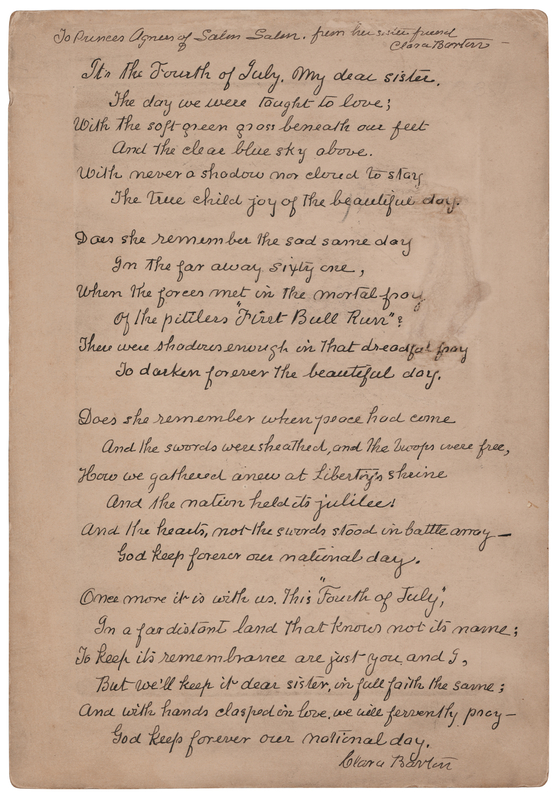 To Princes Agnes of Salm Salm. from her sister friend
Clara Barton –
It's the Fourth of July. My dear sister.
The day we were taught to love;
With the soft green grass beneath our feet
And the clear blue sky above.
With never a shadow nor cloud to stay
The true child joy of the beautiful day.
Does she remember the sad same day
In the far away sixty one,
When the forces met in the mortal fray
Of the pittlers "First Bull Run"?
There were shadows enough in that dreadful fray
To darken forever the beautiful day.
Does she remember when peace had come
And the swords were sheathed, and the troops were free,
How we gathered anew at Liberty's shrine
And the nation held its jubilee!
And the hearts, not the swords stood in battle array –
God keep forever our national day.
Once more it is with us. This "Fourth of July",
In a far distant land that knows not its name;
To keep its remembrance are just you and I,
But we'll keep it dear sister, in full faith the same;
And with hands clasped in love. we will fervently pray –
God keep forever our national day.
Clara Barton